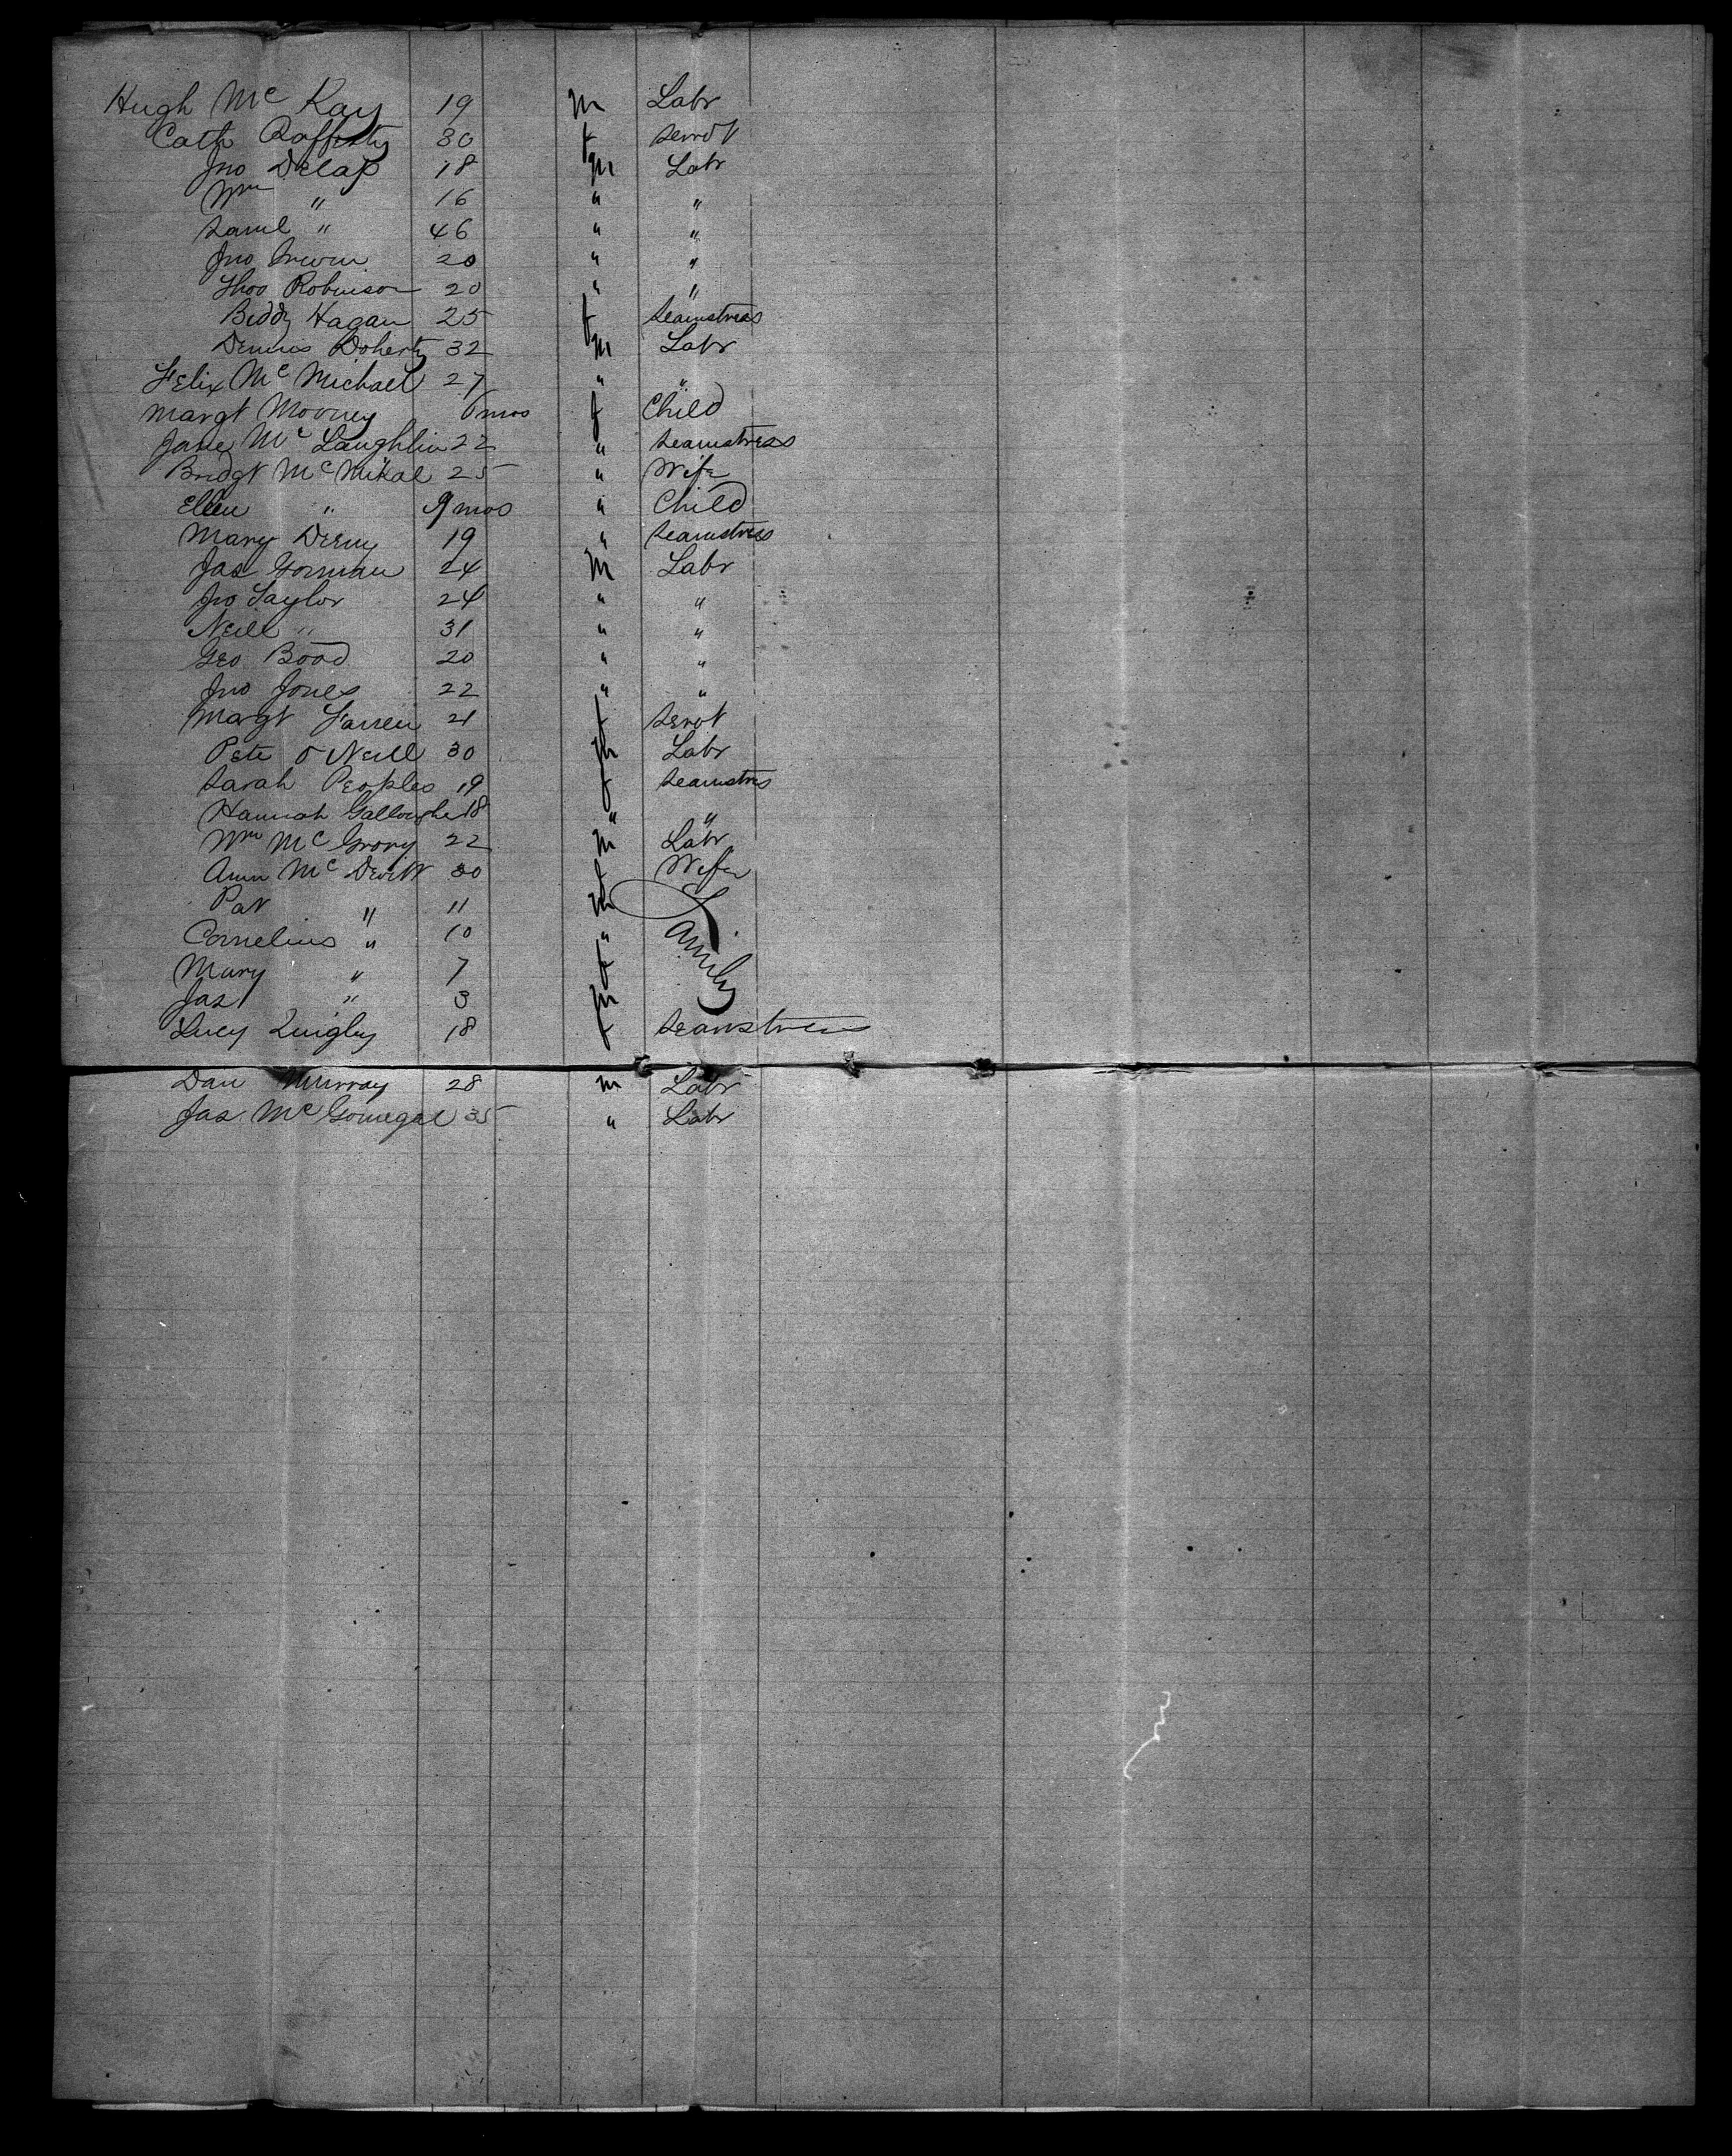 Hugh Mc Kay 19 m Labr
Cath Rafferty 30 f Servt
Jno Delap 18 m Labr
Wm " 16 " "
Saml " 46 " "
Jno Irwin 20 " "
Thos Robinson 20 " "
Biddy Hagan 25 f Seamstress
Dennis Doherty 32 m Labr
Felix Mc Michael 27 " "
Margt Mooney 6 mos f Child
Jane Mc Laughlin 22 " Seamstress
Bridgt Mc Mikal 25 " Wife
Ellen " 9 mos " Child
Mary Deeny 19 " Seamstress
Jas Gorman 24 m Labr
Jno Taylor 24 " "
Neill " 31 " "
Geo Boad 20 " "
Jno Jones 22 " "
Margt Farren 21 f Servt
Pete O Neill 30 m Labr
Sarah Peoples 19 f Seamstrs
Hannah Gallougher 18 " "
Wm Mc Grory 22 m Labr
Ann Mc Devitt 30 f Wife
Pat " 11 m Family
Cornelius " 10 "
Mary " 7 f
Jas " 3 m
Lucy Quigley 18 f Seamstress
Dan Murray 28 m Labr
Jas Mc Gonegal 35 " Labr